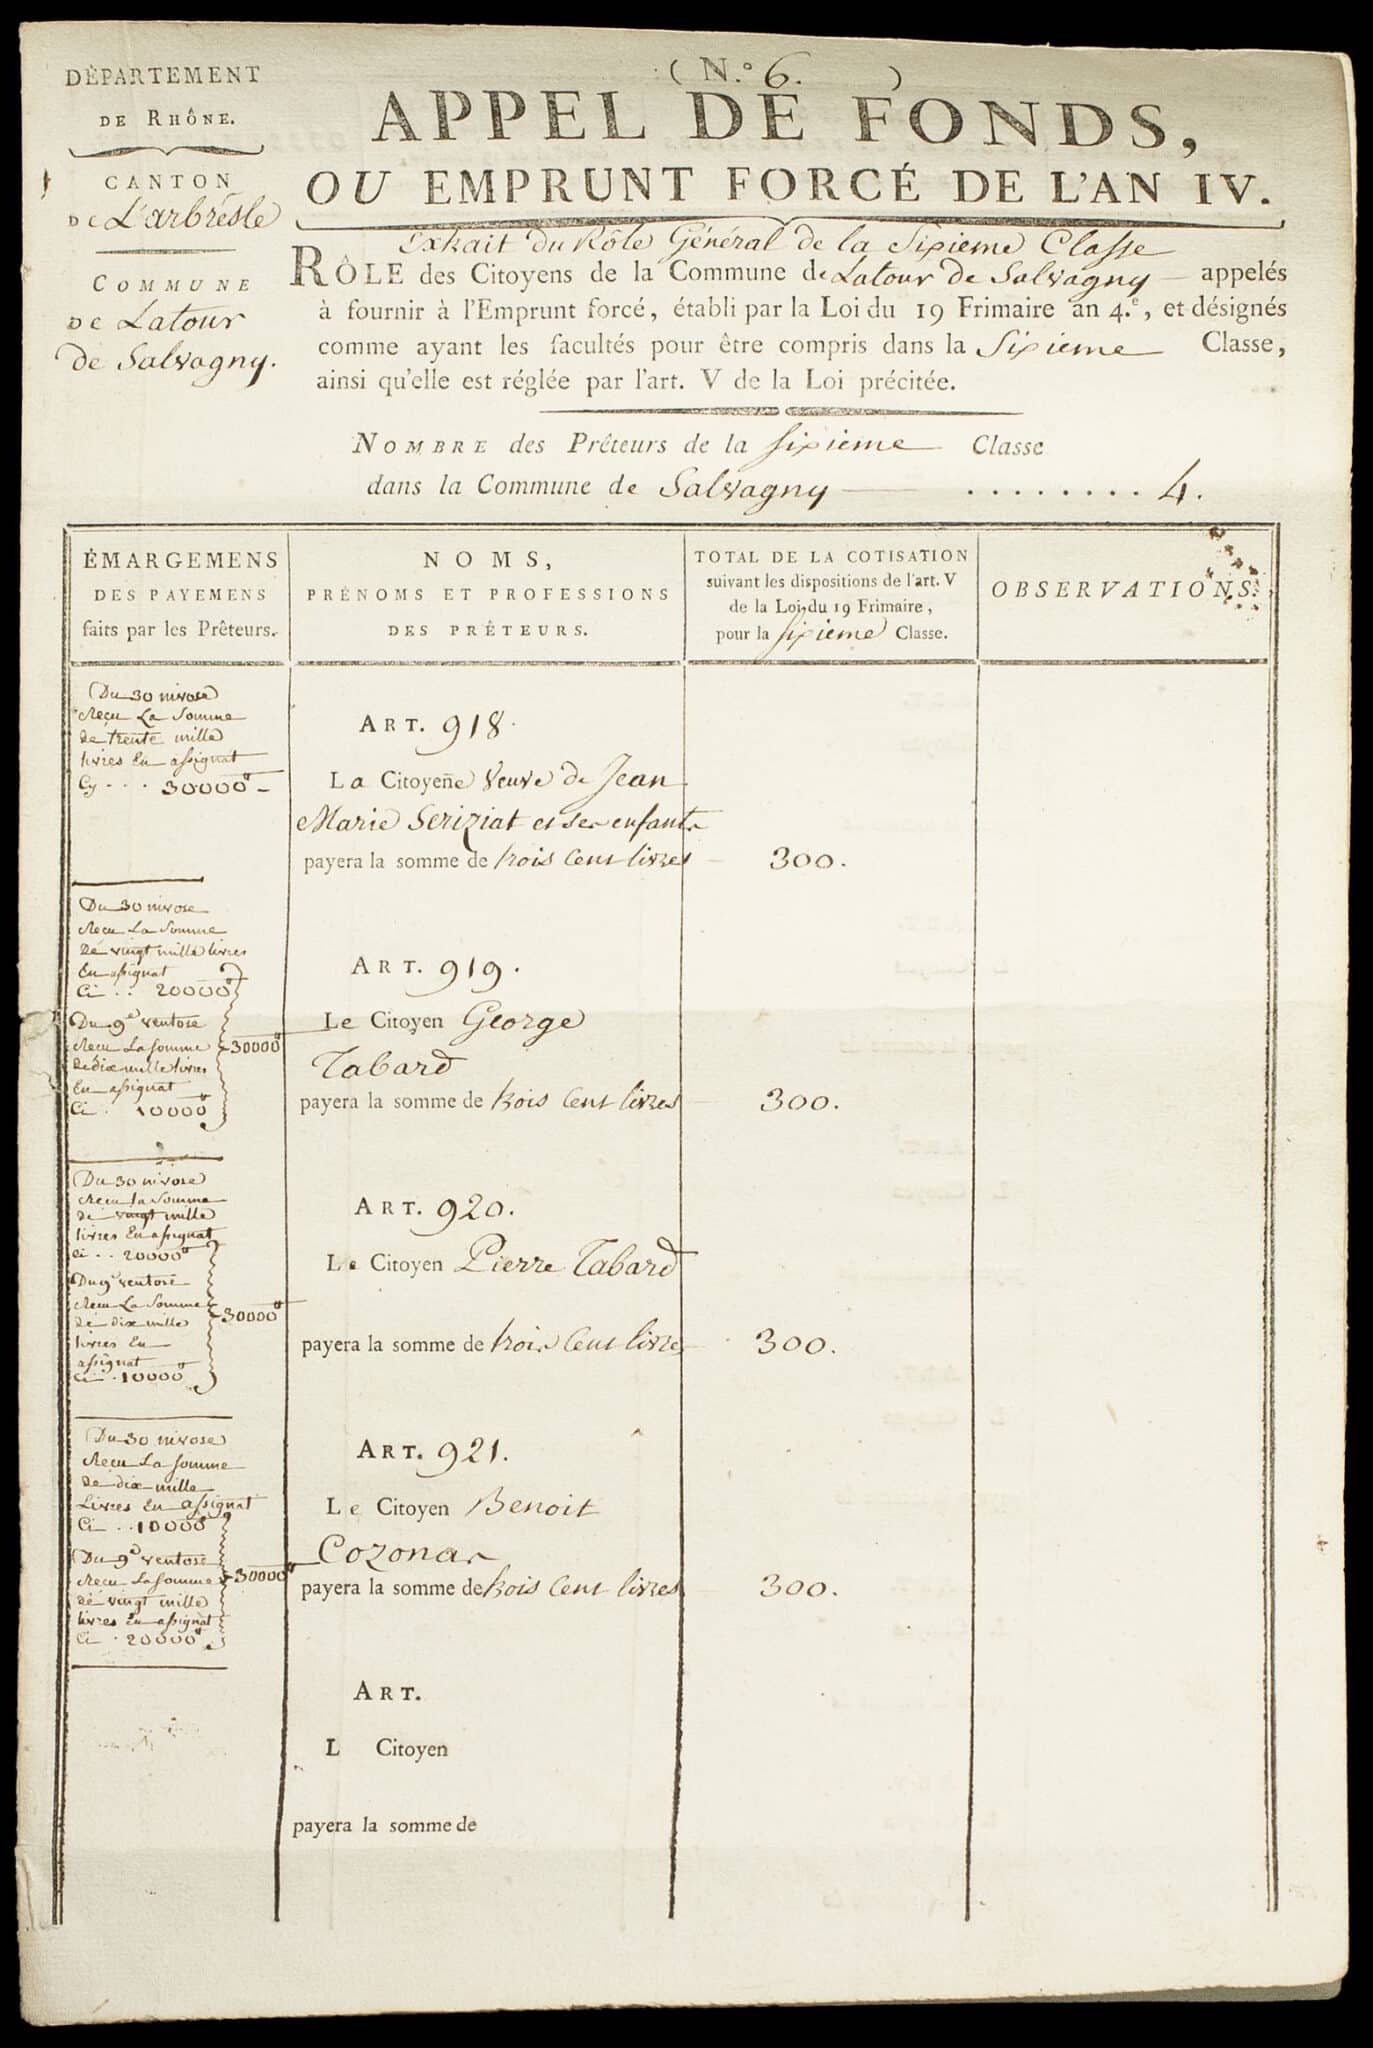 DÉPARTEMENT
DE RHÔNE.
CANTON
DE L'arbresle
COMMUNE
DE Latour
de Salvagny.
( N.º 6. )
APPEL DE FONDS,
OU EMPRUNT FORCÉ DE L'AN IV.
Extrait du Rôle Général de la Sixieme Classe
RÔLE des Citoyens de la Commune de Latour de Salvagny appelés
à fournir à l'Emprunt forcé, établi par la Loi du 19 Frimaire an 4.e, et désignés
comme ayant les facultés pour être compris dans la Sixieme Classe,
ainsi qu'elle est réglée par l'art. V de la Loi précitée.
NOMBRE des Prêteurs de la sixieme Classe
dans la Commune de Salvagny ........ 4.
ÉMARGEMENS
DES PAYEMENS
faits par les Prêteurs.
NOMS,
PRÉNOMS ET PROFESSIONS
DES PRÊTEURS.
TOTAL DE LA COTISATION
suivant les dispositions de l'art. V
de la Loi du 19 Frimaire,
pour la sixieme Classe.
OBSERVATIONS.
Du 30 nivose
Reçu La Somme
de trente mille
livres En assignat
Cy . . . 30000#
ART. 918.
La Citoyeñe Veuve de Jean
Marie Seriziat et ses enfants
payera la somme de trois Cent livres 300.
Du 30 nivose
Reçu La Somme
de vingt mille livres
En assignat
Ci . . 20000#
Du 9e ventose
Recu La somme
de dix mille livres
En assignat
Ci . 10000#
30000#
ART. 919.
Le Citoyen George
Tabard
payera la somme de trois Cent livres 300.
Du 30 nivose
Recu la Somme
de vingt mille
livres En assignat
Ci . . 20000#
Du 9e ventose
Recu La Somme
de dix mille
livres En
assignat
Ci . 10000#
30000#
ART. 920.
Le Citoyen Pierre Tabard
payera la somme de trois Cent livres 300.
Du 30 nivose
Recu La somme
de dix mille
Livres En assignat
Ci . . 10000#
Du 9e ventose
Recu La somme
de vingt mille
livres En assignat
Ci . 20000#
30000#
ART. 921.
Le Citoyen Benoit
Cozonas
payera la somme de trois Cent livres 300.
ART.
L Citoyen
payera la somme de